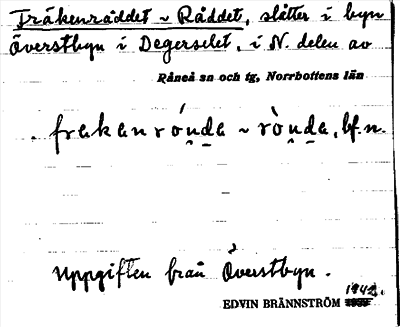 Fräkenräddet ~ Räddet, slåtter i byn
Överstbyn i Degerselet, i N. delen av
Råneå sn och tg, Norrbottens län
frakanrónda ~ rònda, bf.n.
Uppgiften från Överstbyn.
1942.
EDVIN BRÄNNSTRÖM